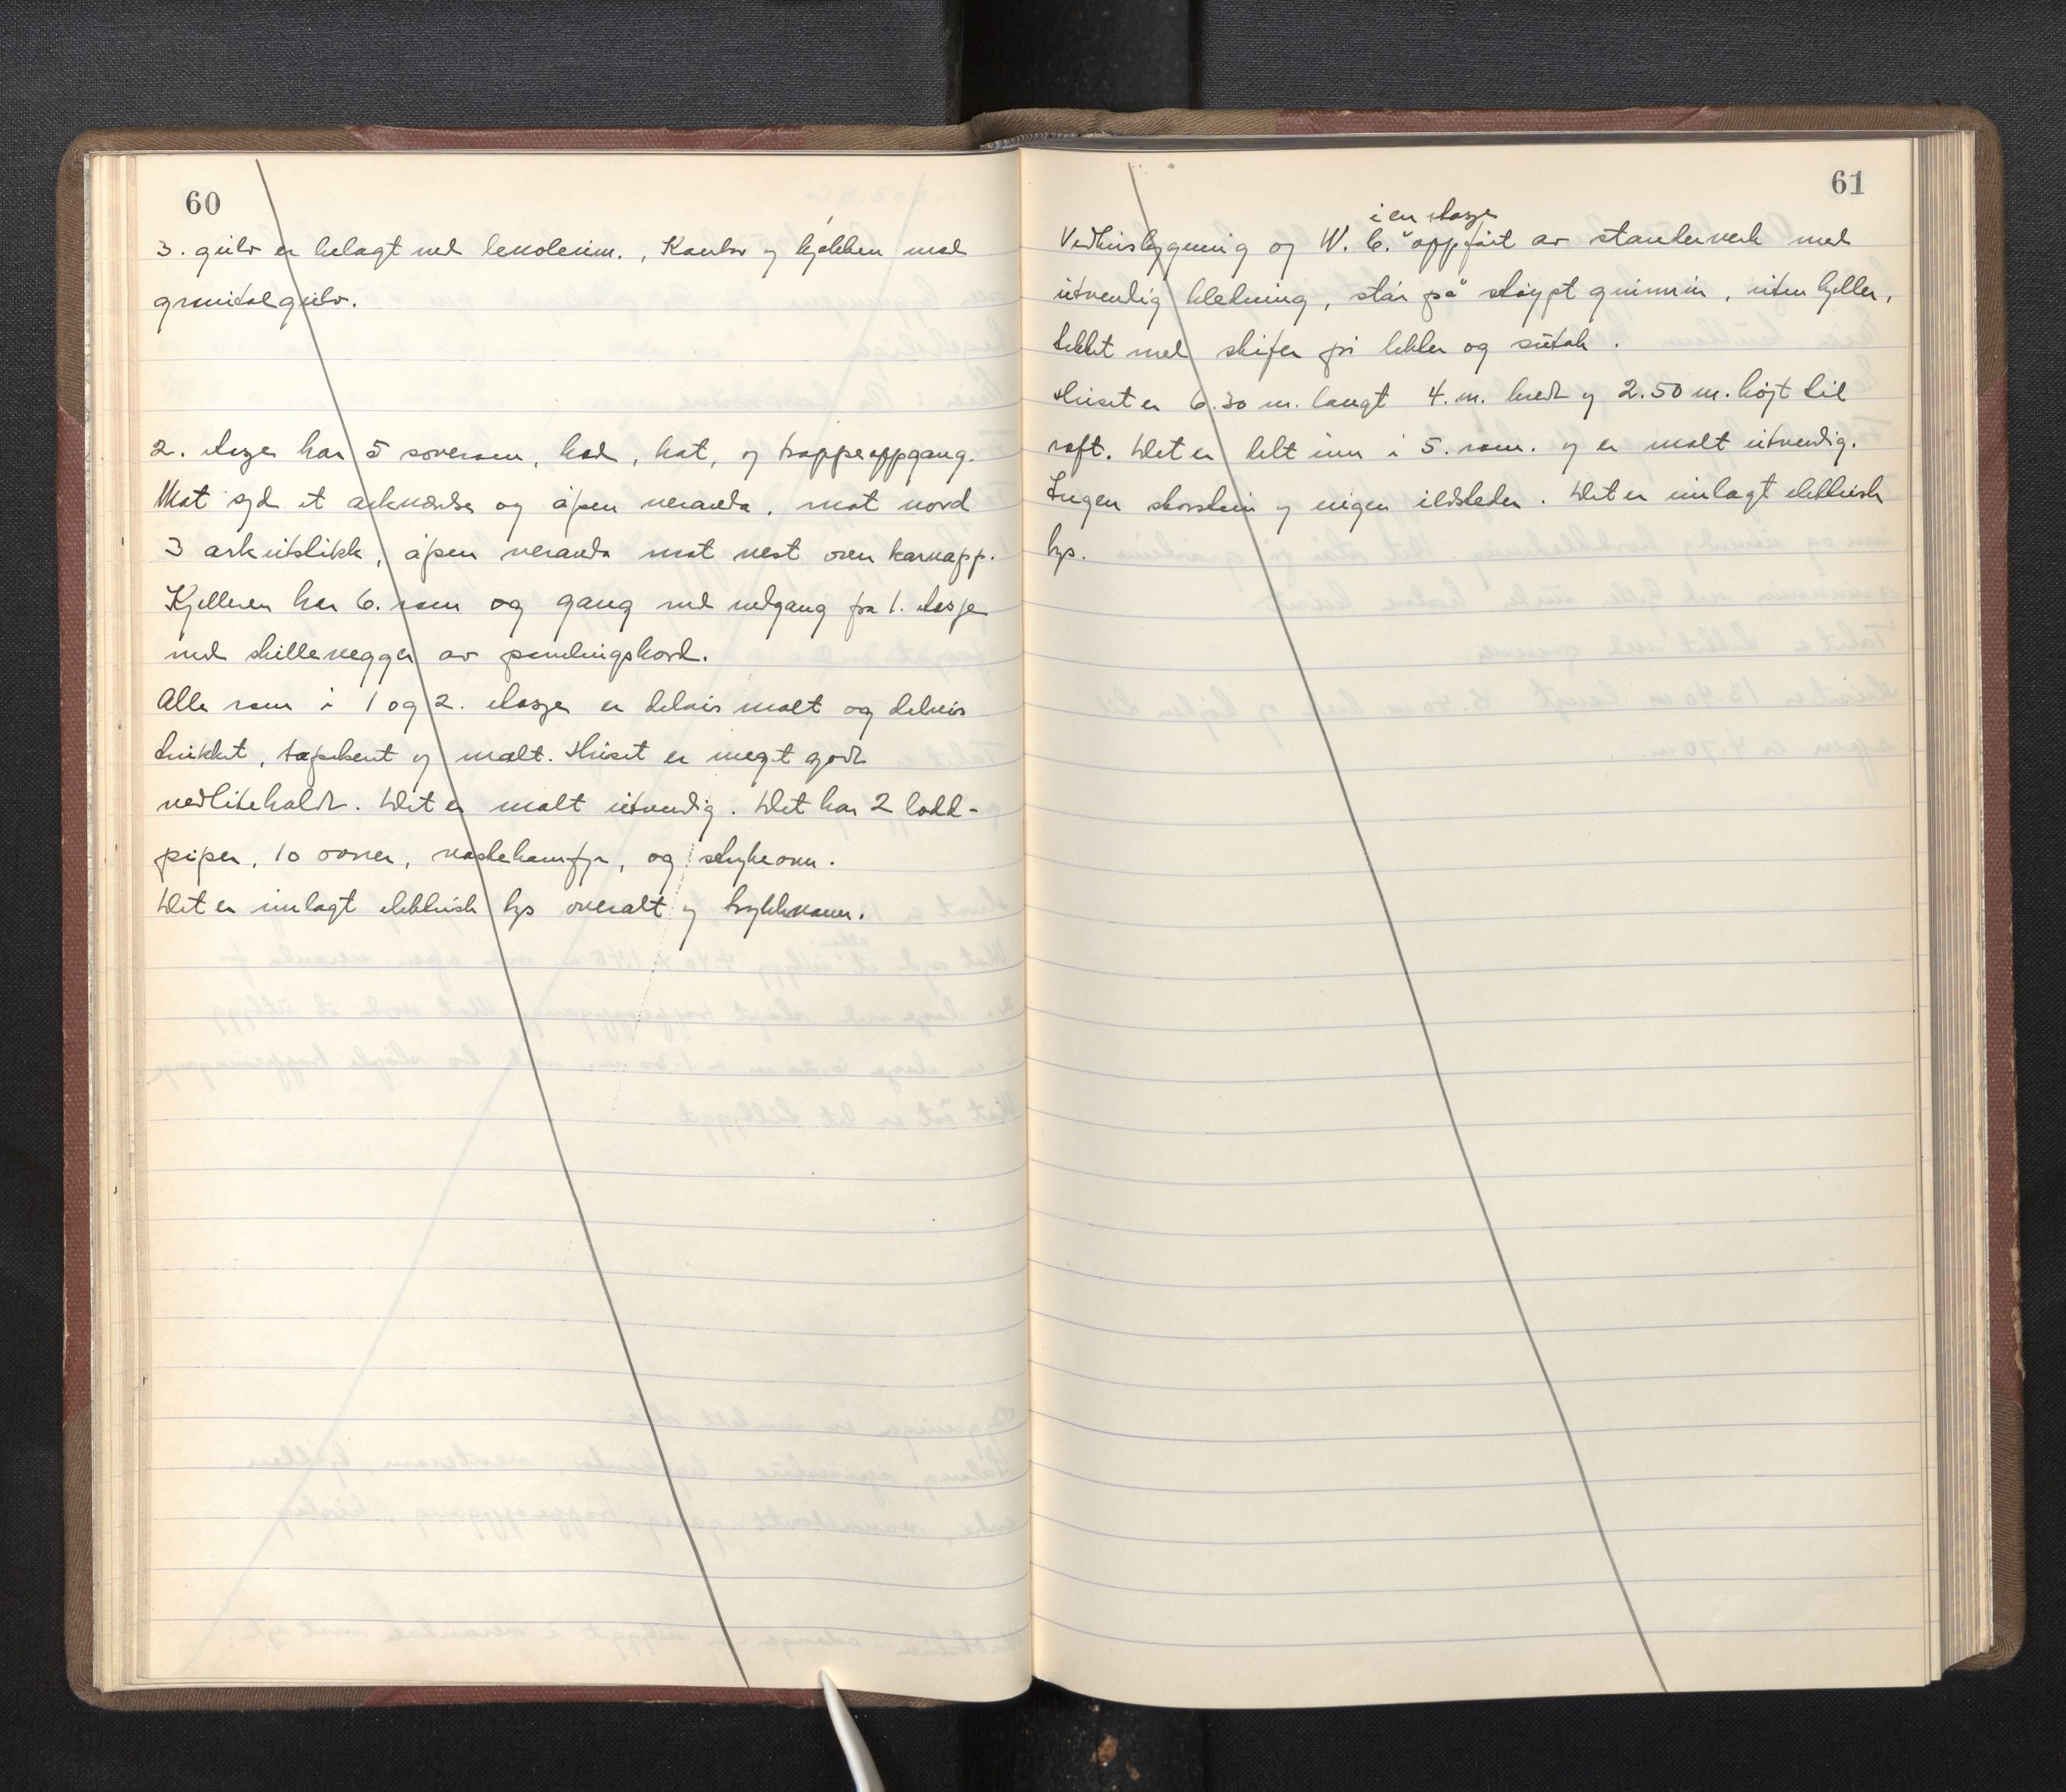 60
3. gulv er belagt med lenoleum. , Kontor og kjøkken med
granitolgulv.
2. etasje har 5 soverom, bad, kot, og trappeoppgang.
Mot syd et arkværelse og åpen veranda, mot nord
3 arkutstikk, åpen veranda mot vest over karnapp.
Kjelleren har 6. rom og gang med nedgang fra 1. etasje
med skillevegger av pendlingsbord.
Alle rom i 1 og 2. etasje er delvis malt og delvis
trukket, tapetsert og malt. Huset er meget godt
vedlikeholdt. Det er malt utvendig. Det har 2 lodd-
piper, 10 ovner, vaskekomfyr, og strykeovn.
Det er innlagt elektrisk lys overalt og trykkvann.
61
i en etasje
Vedhusbygning og W.C. oppført av standerverk med
utvendig kledning, står på støypt grunnmur, uten kjeller,
tekket med skifer på lekter og sutak.
Huset er 6.30 m. langt 4. m. bredt og 2.50 m. højt til
raft. Det er delt inn i 5. rom. og er malt utvendig.
Ingen skorstein og ingen ildsteder. Det er innlagt elektrisk
lys.